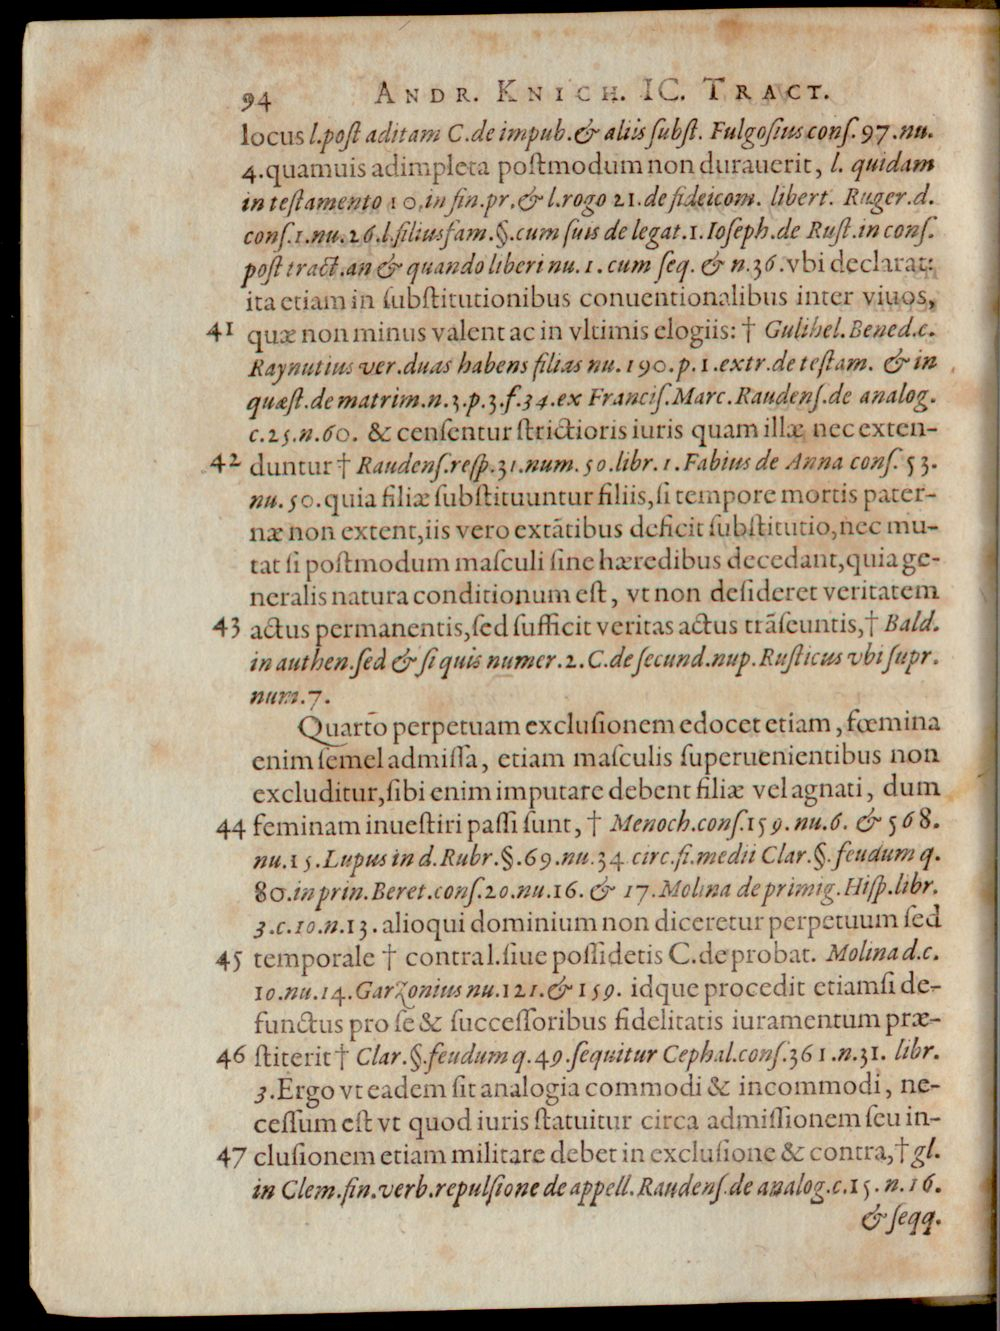 94 ANDR. KNICH. IC. TRACT.
locus l.post aditam C.de impub.& aliis subst. Fulgosius cons.97.nu.
4.quamuis adimpleta postmodum non durauerit, l. quidam
in testamento 10.in fin.pr.& l.rogo 21.de fideicom. libert. Ruger.d.
cons.1.nu.26.l.filiusfam.§.cum suis de legat.1.Ioseph.de Rust.in cons.
post tract.an & quando liberi nu.1.cum seq. & n.36.vbi declarat:
ita etiam in substitutionibus conuentionalibus inter viuos,
41 quæ non minus valent ac in vltimis elogiis: † Gulihel.Bened.c.
Raynutius ver.duas habens filias nu.190.p.1.extr.de testam. & in
quæst.de matrim.n.3.p.3.f.34.ex Francis.Marc.Raudens.de analog.
c.25.n.60. & censentur strictioris iuris quam illæ nec exten-
42 duntur † Raudens.resp.31.num.50.libr.1.Fabius de Anna cons.53.
nu.50.quia filiæ substituuntur filiis,si tempore mortis pater-
næ non extent,iis vero extãtibus deficit substitutio,nec mu-
tat si postmodum masculi sine hæredibus decedant,quia ge-
neralis natura conditionum est, vt non desideret veritatem
43 actus permanentis,sed sufficit veritas actus trãseuntis,† Bald.
in authen.sed & si quis numer.2.C.de secund.nup.Rusticus vbi supr.
num.7.
Quarto perpetuam exclusionem edocet etiam, fœmina
enim semel admissa, etiam masculis superuenientibus non
excluditur,sibi enim imputare debent filiæ vel agnati, dum
44 feminam inuestiri passi sunt, † Menoch.cons.159.nu.6. & 568.
nu.15.Lupus in d.Rubr.§.69.nu.34 circ.fi.medii Clar.§.feudum q.
80.in prin.Beret.cons.20.nu.16. & 17.Molina de primig.Hisp.libr.
3.c.10.n.13. alioqui dominium non diceretur perpetuum sed
45 temporale † contra l.siue possidetis C.de probat. Molina d.c.
10.nu.14.Garzonius nu.121.& 159. idque procedit etiamsi de-
functus pro se & successoribus fidelitatis iuramentum præ-
46 stiterit † Clar.§.feudum q.49.sequitur Cephal.cons.361.n.31. libr.
3.Ergo vt eadem sit analogia commodi & incommodi, ne-
cessum est vt quod iuris statuitur circa admissionem seu in-
47 clusionem etiam militare debet in exclusione & contra,† gl.
in Clem.fin.verb.repulsione de appell.Raudens.de analog.c.15.n.16.
& seqq.